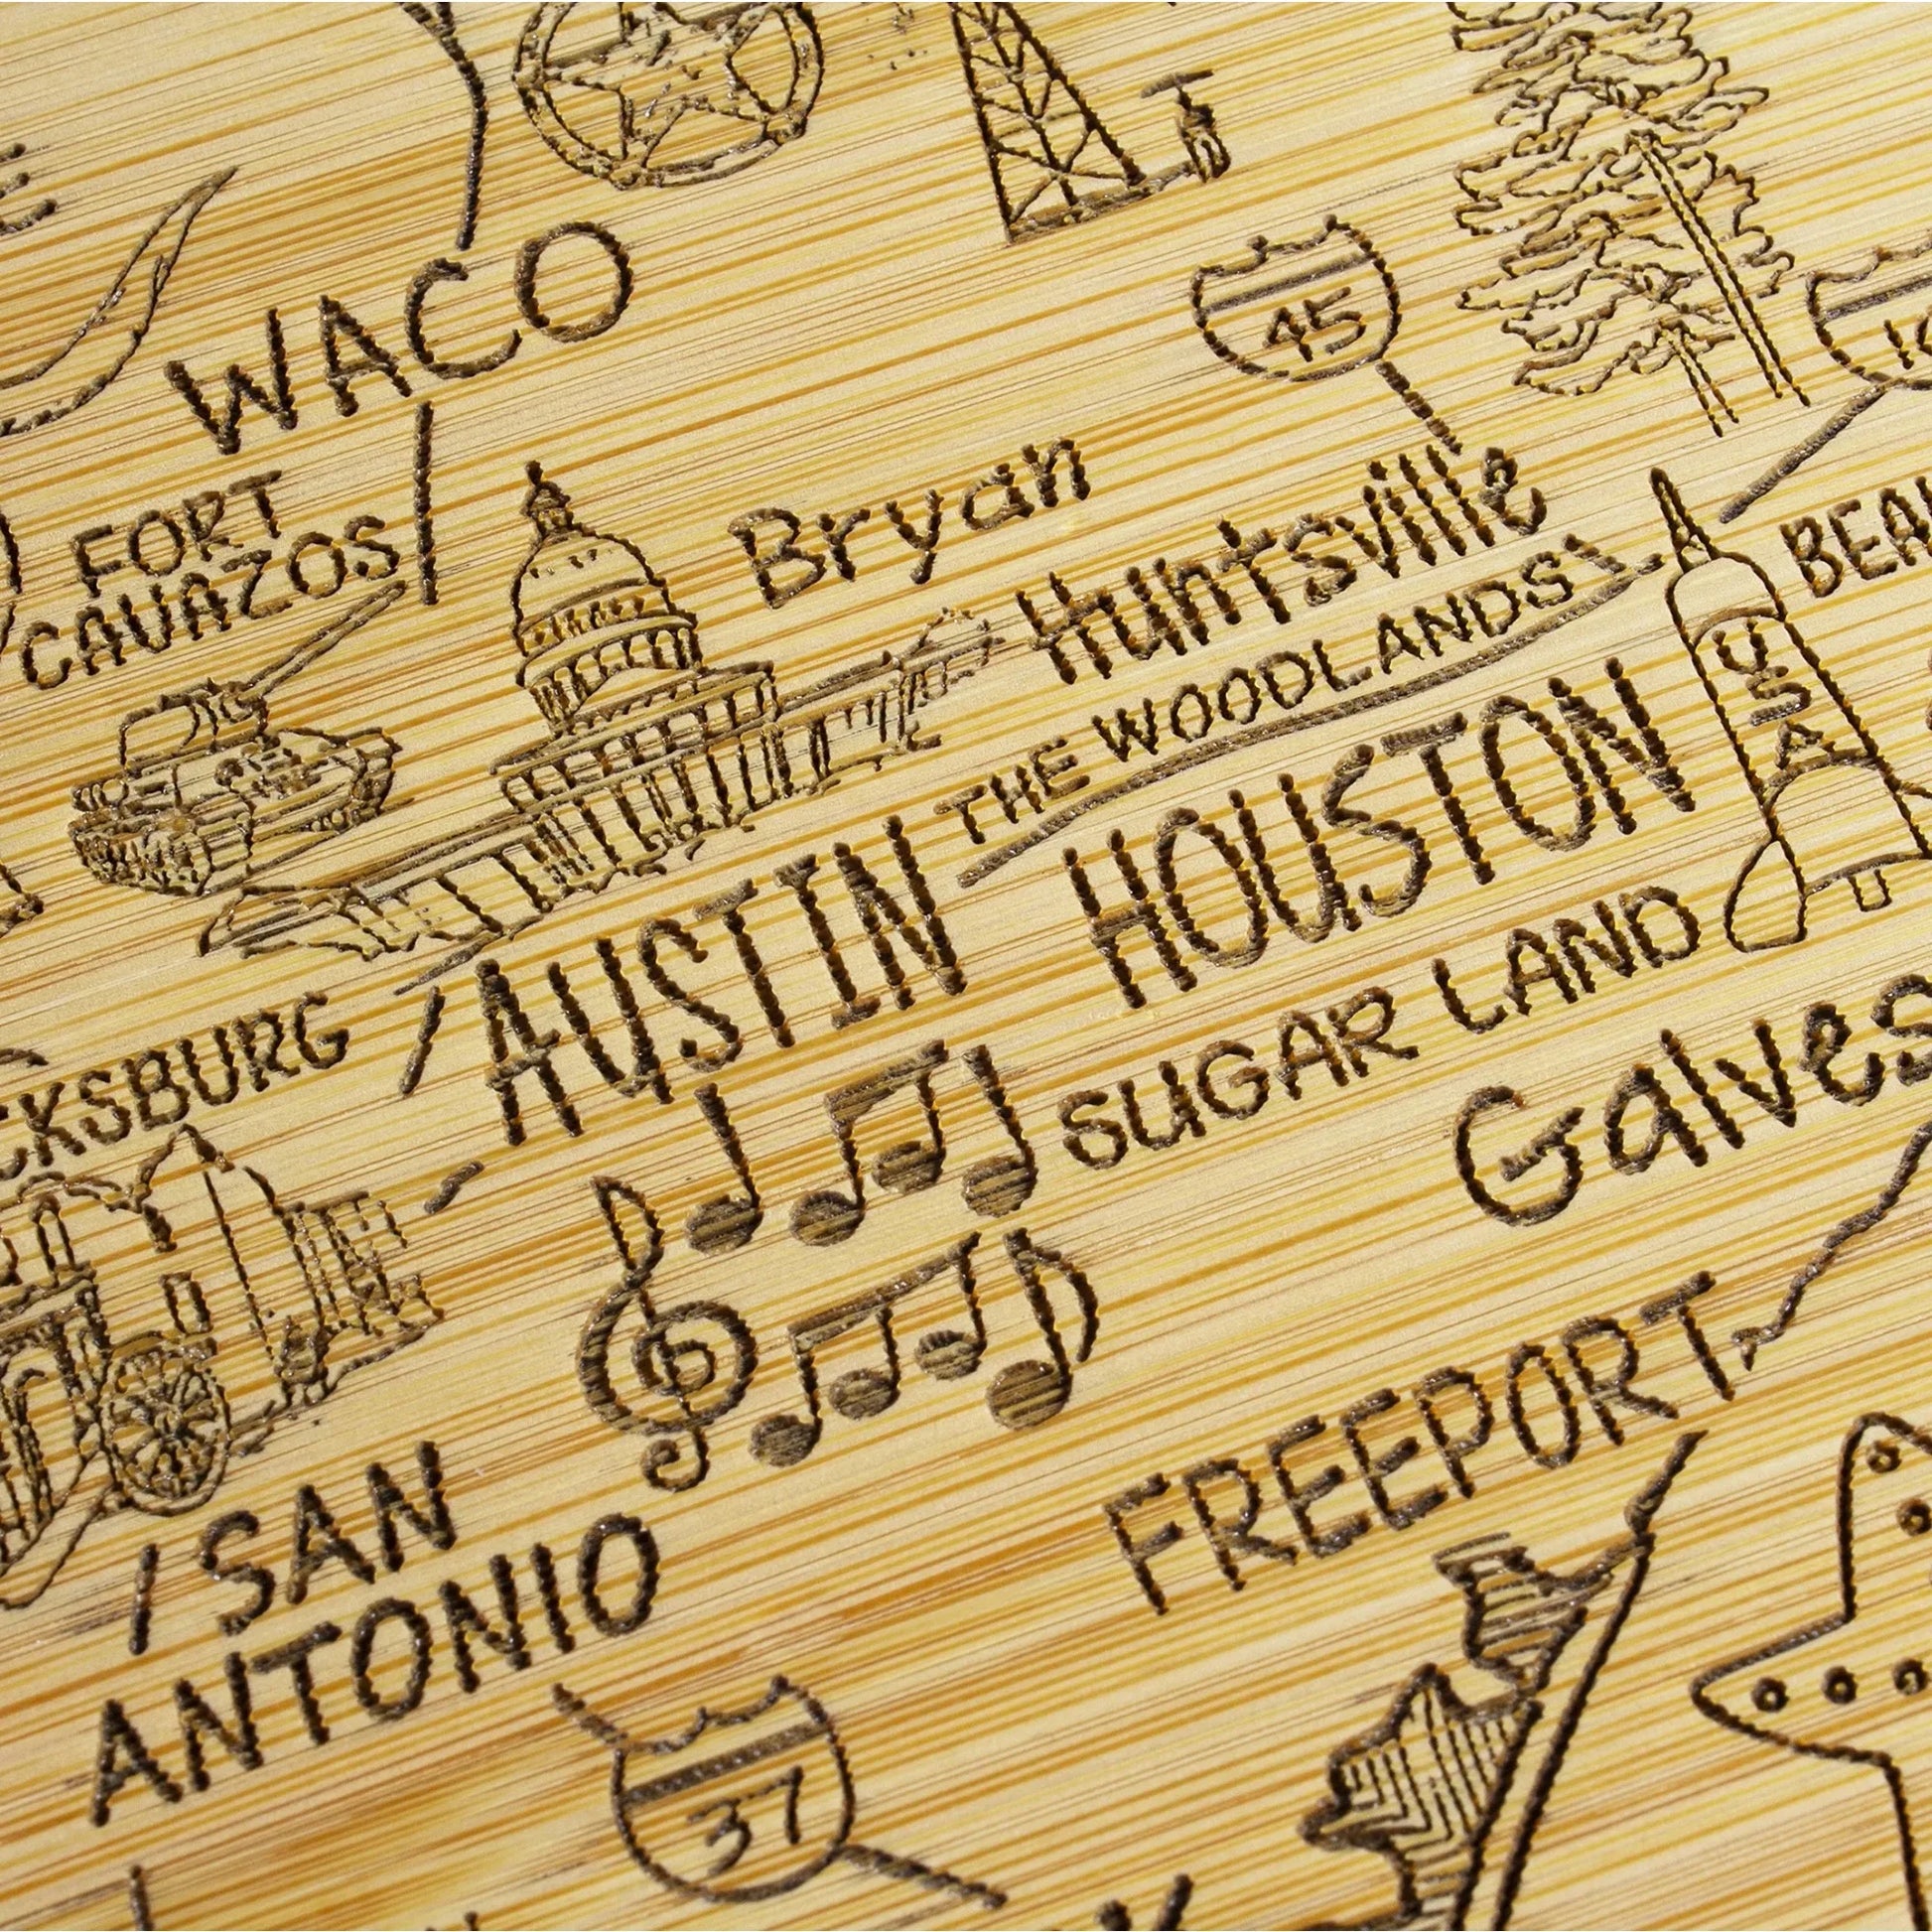 WACO
45
FORT
CAVAZOS
Bryan
Huntsville
THE WOODLANDS
USA
AUSTIN
HOUSTON
SUGAR LAND
FREEPORT
SAN
ANTONIO
37